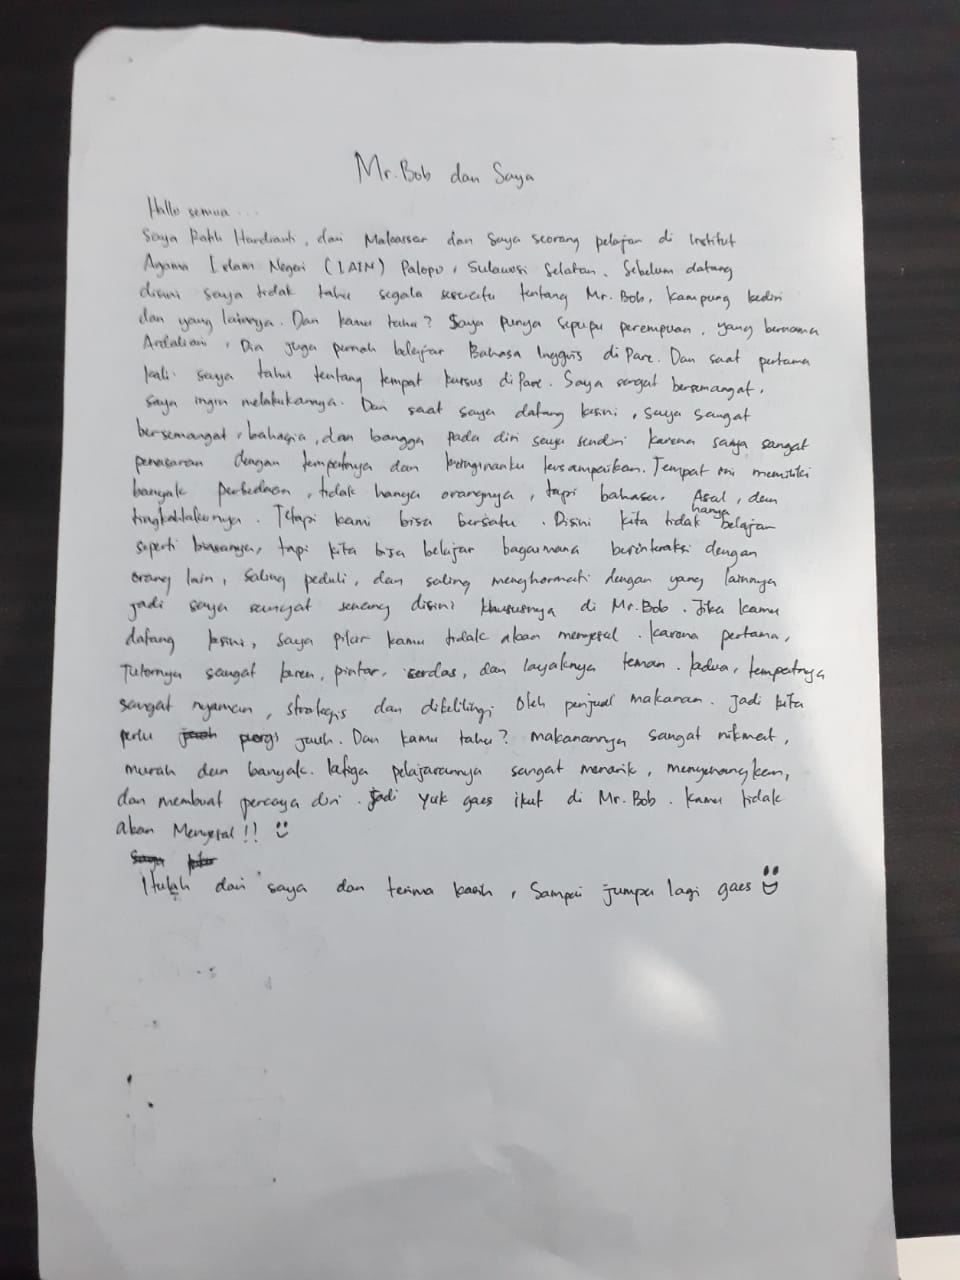 Mr. Bob dan Saya
Hallo semua ...
Saya Ratih Hardianti, dari Makassar dan saya seorang pelajar di Institut
Agama Islam Negeri (IAIN) Palopo, Sulawesi Selatan. Sebelum datang
disini saya tidak tahu segala sesuatu tentang Mr. Bob, kampung kediri
dan yang lainnya. Dan kamu tahu? Saya punya sepupu perempuan, yang bernama
Dia juga pernah belajar Bahasa Inggris di Pare. Dan saat pertama
kali saya tahu tentang tempat kursus di Pare. Saya sangat bersemangat,
saya ingin melakukannya. Dan saat saya datang kesini, saya sangat
bersemangat, bahagia, dan bangga pada diri saya sendiri karena saya sangat
penasaran dengan tempatnya dan keinginanku tersampaikan. Tempat ini memiliki
banyak perbedaan, tidak hanya orangnya, tapi bahasa, Asal, dan
tingkahlakunya. Tetapi kami bisa bersatu. Disini kita tidak hanya belajar
seperti biasanya, tapi kita bisa belajar bagaimana berinteraksi dengan
orang lain, saling peduli, dan saling menghormati dengan yang lainnya
jadi saya sangat senang disini khususnya di Mr. Bob. Jika kamu
datang kesini, saya pikir kamu tidak akan menyesal. karena pertama,
Tutornya sangat keren, pintar, cerdas, dan layaknya teman. kedua, tempatnya
sangat nyaman, strategis dan dikelilingi oleh penjual makanan. Jadi kita
perlu pergi jauh. Dan kamu tahu? makanannya sangat nikmat,
murah dan banyak. ketiga pelajarannya sangat menarik, menyenangkan,
dan membuat percaya diri. Jadi yuk gaes ikut di Mr. Bob. kamu tidak
akan Menyesal!!
Itulah dari saya dan terima kasih, Sampai jumpa lagi gaes